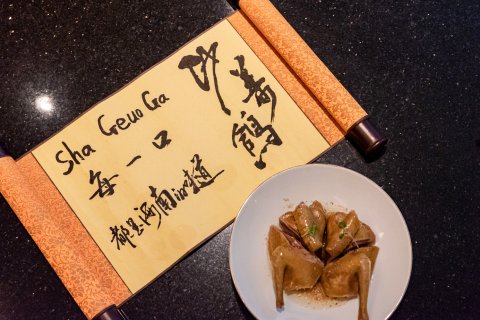 沙姜鸽
Sha Geuo Ga
每一口
都是海南味道